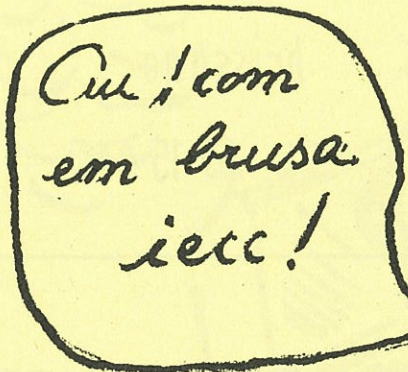 Cui! com
em brusa
iecc!